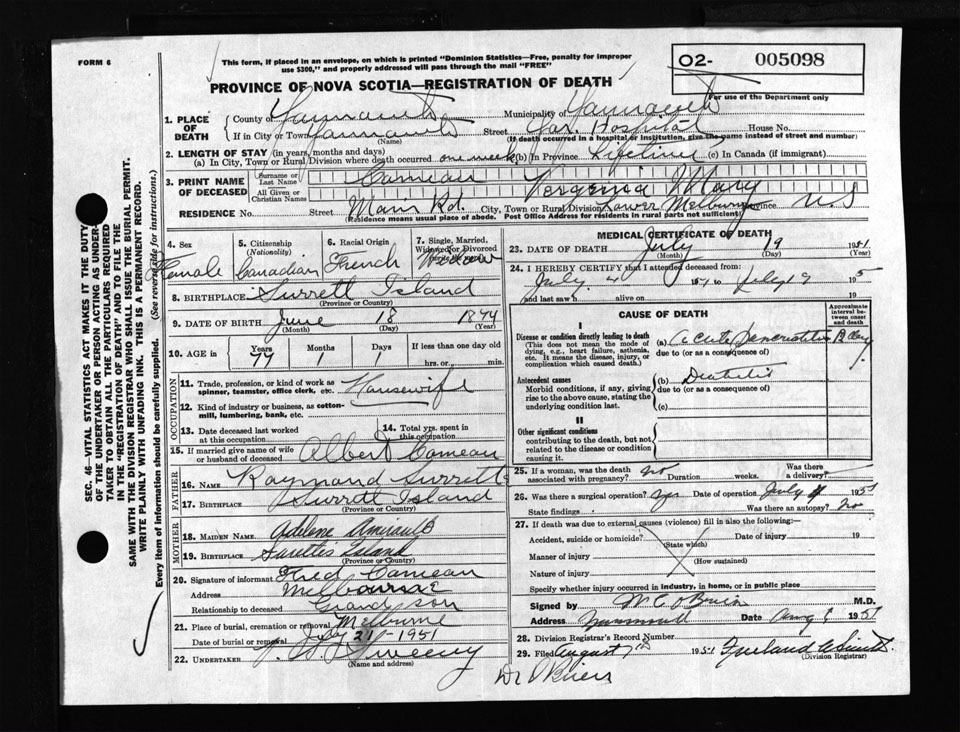 FORM 6
This form, if placed in an envelope, on which is printed "Dominion Statistics—Free, penalty for improper
use $300," and properly addressed will pass through the mail "FREE"
02- 005098
For use of the Department only
PROVINCE OF NOVA SCOTIA—REGISTRATION OF DEATH
1. PLACE OF DEATH
County of Yarmouth Municipality of Yarmouth
If in City or Town Yarmouth Street Yar. Hospital House No.
(Name) (If death occurred in a hospital or institution, give the name instead of street and number)
2. LENGTH OF STAY (in years, months and days)
(a) In City, Town or Rural Division where death occurred one week (b) In Province Lifetime (c) In Canada (if immigrant)
3. PRINT NAME OF DECEASED
Surname or Last Name Comeau
All Given or Christian Names Vergenia Mary
RESIDENCE No. Street Main Rd. City, Town or Rural Division Lower Melbourne Province N.S
(Residence means usual place of abode. Post Office Address for residents in rural parts not sufficient)
4. Sex Female
5. Citizenship (Nationality) Canadian
6. Racial Origin French
7. Single, Married, Widowed or Divorced Widow
8. BIRTHPLACE Surrett Island
(Province or Country)
9. DATE OF BIRTH June 18 1874
(Month) (Day) (Year)
10. AGE in YEARS 77 Months 1 Days 1 If less than one day old
hrs. or min.
OCCUPATION
11. Trade, profession, or kind of work as spinner, teamster, office clerk, etc. Housewife
12. Kind of industry or business, as cotton-mill, lumbering, bank, etc.
13. Date deceased last worked at this occupation
14. Total yrs. spent in this occupation
15. If married give name of wife or husband of deceased Albert Comeau
FATHER
16. NAME Raymond Surrette
17. BIRTHPLACE Surrett Island
(Province or Country)
MOTHER
18. MAIDEN NAME Adelene Amirault
19. BIRTHPLACE Island
(Province or Country)
20. Signature of informant Fred Comeau
Address Melbourne
Relationship to deceased Grand son
21. Place of burial, cremation or removal Melbourne
Date of burial or removal July 21-1951
22. UNDERTAKER Sweeny
(Name and address)
MEDICAL CERTIFICATE OF DEATH
23. DATE OF DEATH July 19 1951
(Month) (Day) (Year)
24. I HEREBY CERTIFY that I attended deceased from
July 4 1951 to July 19 195
and last saw h alive on 19
CAUSE OF DEATH
Approximate interval between onset and death
I
Disease or condition directly leading to death
(This does not mean the mode of dying, e.g., heart failure, asthenia, etc. It means the disease, injury, or complication which caused death.)
(a) Acute Pancreatitis
due to (or as a consequence of)
Antecedent causes
Morbid conditions, if any, giving rise to the above cause, stating the underlying condition last.
(b)
due to (or as a consequence of)
(c)
II
Other significant conditions
contributing to the death, but not related to the disease or condition causing it.
25. If a woman, was the death associated with pregnancy? no Duration weeks. Was there a delivery?
26. Was there a surgical operation? yes Date of operation July 4 1951
State findings Was there an autopsy? no
27. If death was due to external causes (violence) fill in also the following:—
Accident, suicide or homicide? Date of injury 19
(State which)
Manner of injury
(How sustained)
Nature of injury
Specify whether injury occurred in industry, in home, or in public place
Signed by M C O'Brien M.D.
Address Yarmouth Date Aug 1 1951
28. Division Registrar's Record Number
29. Filed August 7th 1951
(Division Registrar)
Dr O'Brien
SEC. 46—VITAL STATISTICS ACT MAKES IT THE DUTY
OF THE UNDERTAKER OR PERSON ACTING AS UNDER-
TAKER TO OBTAIN ALL THE PARTICULARS REQUIRED
IN THE "REGISTRATION OF DEATH" AND TO FILE THE
SAME WITH THE DIVISION REGISTRAR WHO SHALL ISSUE THE BURIAL PERMIT.
WRITE PLAINLY WITH UNFADING INK. THIS IS A PERMANENT RECORD.
Every item of information should be carefully supplied. (See reverse side for instructions.)